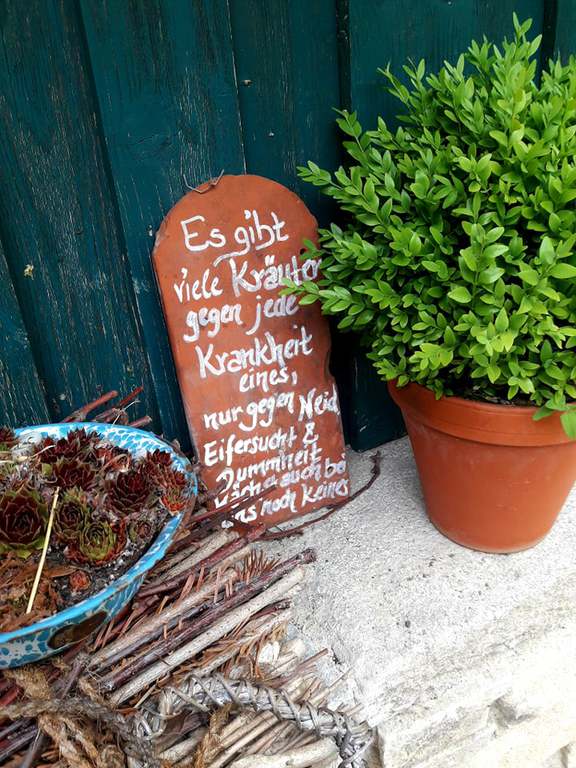 Es gibt
viele Kräuter
gegen jede
Krankheit
eines,
nur gegen Neid,
Eifersucht &
Dummheit
auch bei
uns noch keines